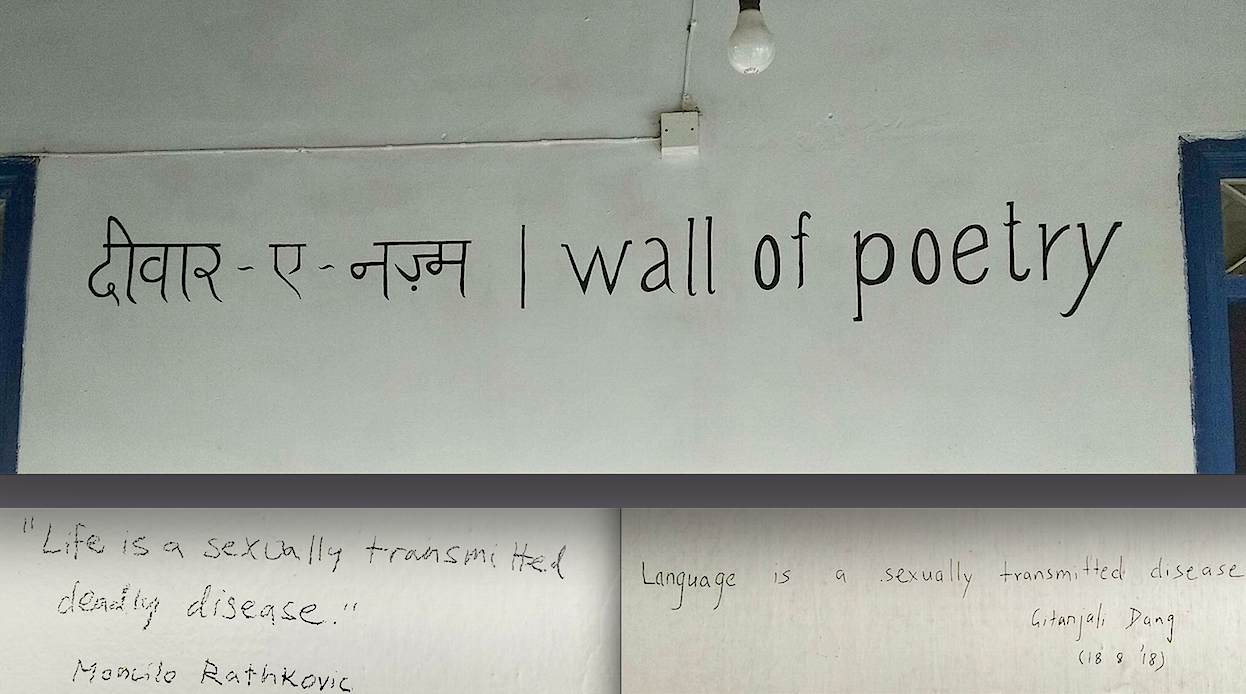 दीवार - ए - नज़्म | wall of poetry
"Life is a sexually transmitted
deadly disease."
Momcilo Rathkovic
Language is a sexually transmitted disease
Gitanjali Dang
(18 8 '18)